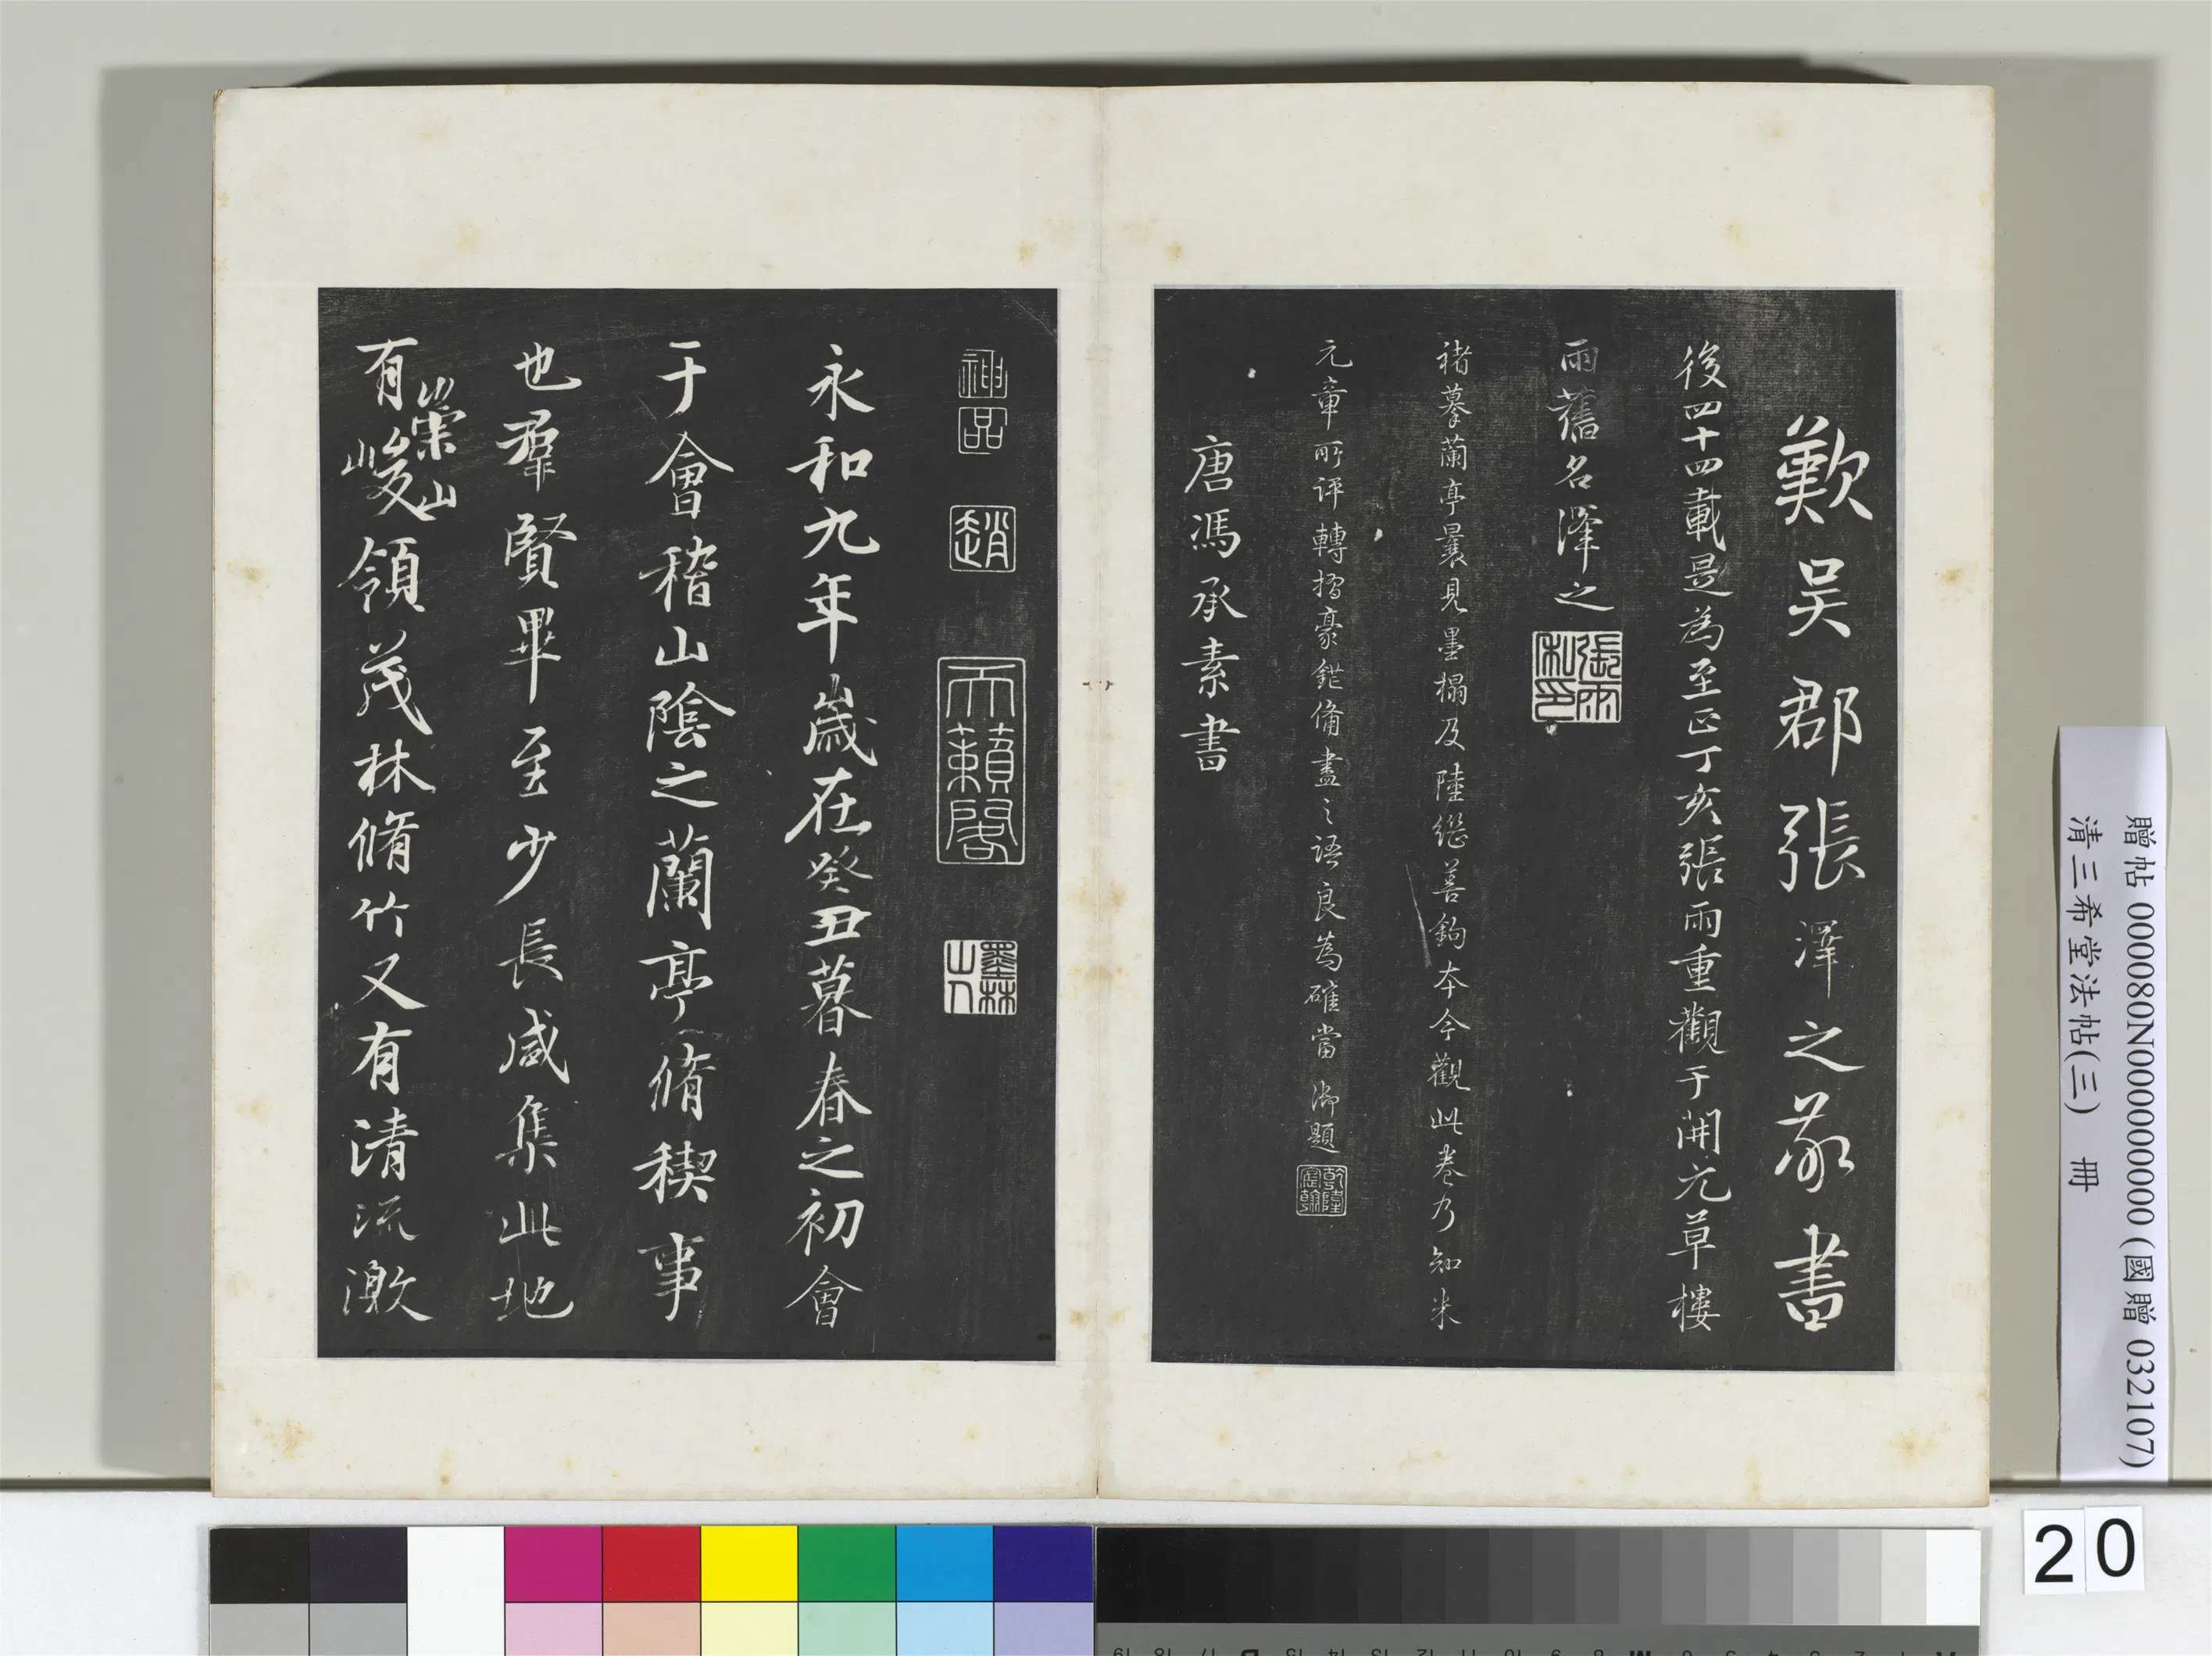 歎吳郡張澤之敬書
後四十四載是為至正丁亥張雨重觀于開元草樓
雨舊名澤之
張雨私印
褚摹蘭亭曩見墨榻及陸繼善鉤本今觀此卷乃知米
元章所評轉摺豪鋩備盡之語良為確當 御題
乾隆宸翰
唐馮承素書
神品
趙
天籟閣
墨林山人
永和九年歲在癸丑暮春之初會
于會稽山陰之蘭亭脩稧事
也羣賢畢至少長咸集此地
有崇山峻領茂林脩竹又有清流激
贈帖 000080N000000000 (國贈 032107)
清三希堂法帖(三) 冊
20